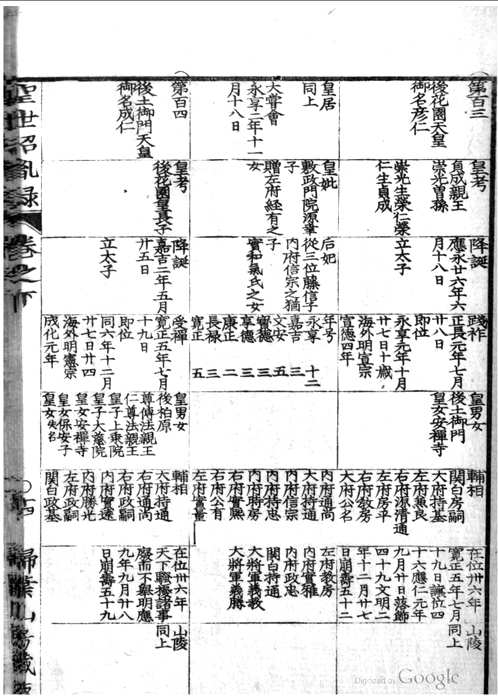 第百三
後花園天皇
御名彦仁
皇考
貞成親王
崇光曽孫
崇光生榮仁榮
仁生貞成
降誕
應永廿六年六
月十八日
立太子
踐祚
正長元年七月
廿八日
即位
永享元年十月
廿七日十歳
海外明宣宗
宣德四年
皇男女
後土御門
皇女安禪寺
輔相
関白房嗣
大府持基
左府兼良
右府房平
右府教房
大府公名
在位卅六年
山陵
寛正五年七月
同上
十九日讓位四
十六應仁元年
九月廿日落飾
四十九文明二
年十二月廿七
日崩壽五十二
皇居
同上
大嘗會
永享二年十一
月十八日
皇妣
敷政門院源幸
子
贈左府経有之
女
后妃
從三位藤信子
内府信宗之猶
子
實和氣氏之女
年号
永享 十二
嘉吉 三
文安 五
寶德 三
享德 三
康正 二
長禄 三
寛正 五
内府通尚
大府持通
内府信宗
内府持忠
内府時房
右府實熈
右府公有
左府實量
左府教房
内府實雅
内府政忠
関白持通
大將軍義教
大將軍義勝
第百四
後土御門天皇
御名成仁
皇考
後花園皇長子
降誕
嘉吉二年五月
廿五日
立太子
受禪
寛正五年七月
十九日
即位
同六年十二月
廿七日廿四
海外明憲宗
成化元年
皇男女
後柏原
尊傳法親王
仁尊法親王
皇子上乗院
皇子大慈院
皇女安禪寺
皇女保安寺
皇女失名
輔相
大府持通
右府通尚
右府政嗣
内府實遠
内府勝光
左府政嗣
関白政基
在位卅六年
山陵
天下騒擾諸事
同上
廢而不舉明應
九年九月廿八
日崩壽五十九
聖世紹胤録
卷之下
十四
掃葉山房藏
Digitized by Google